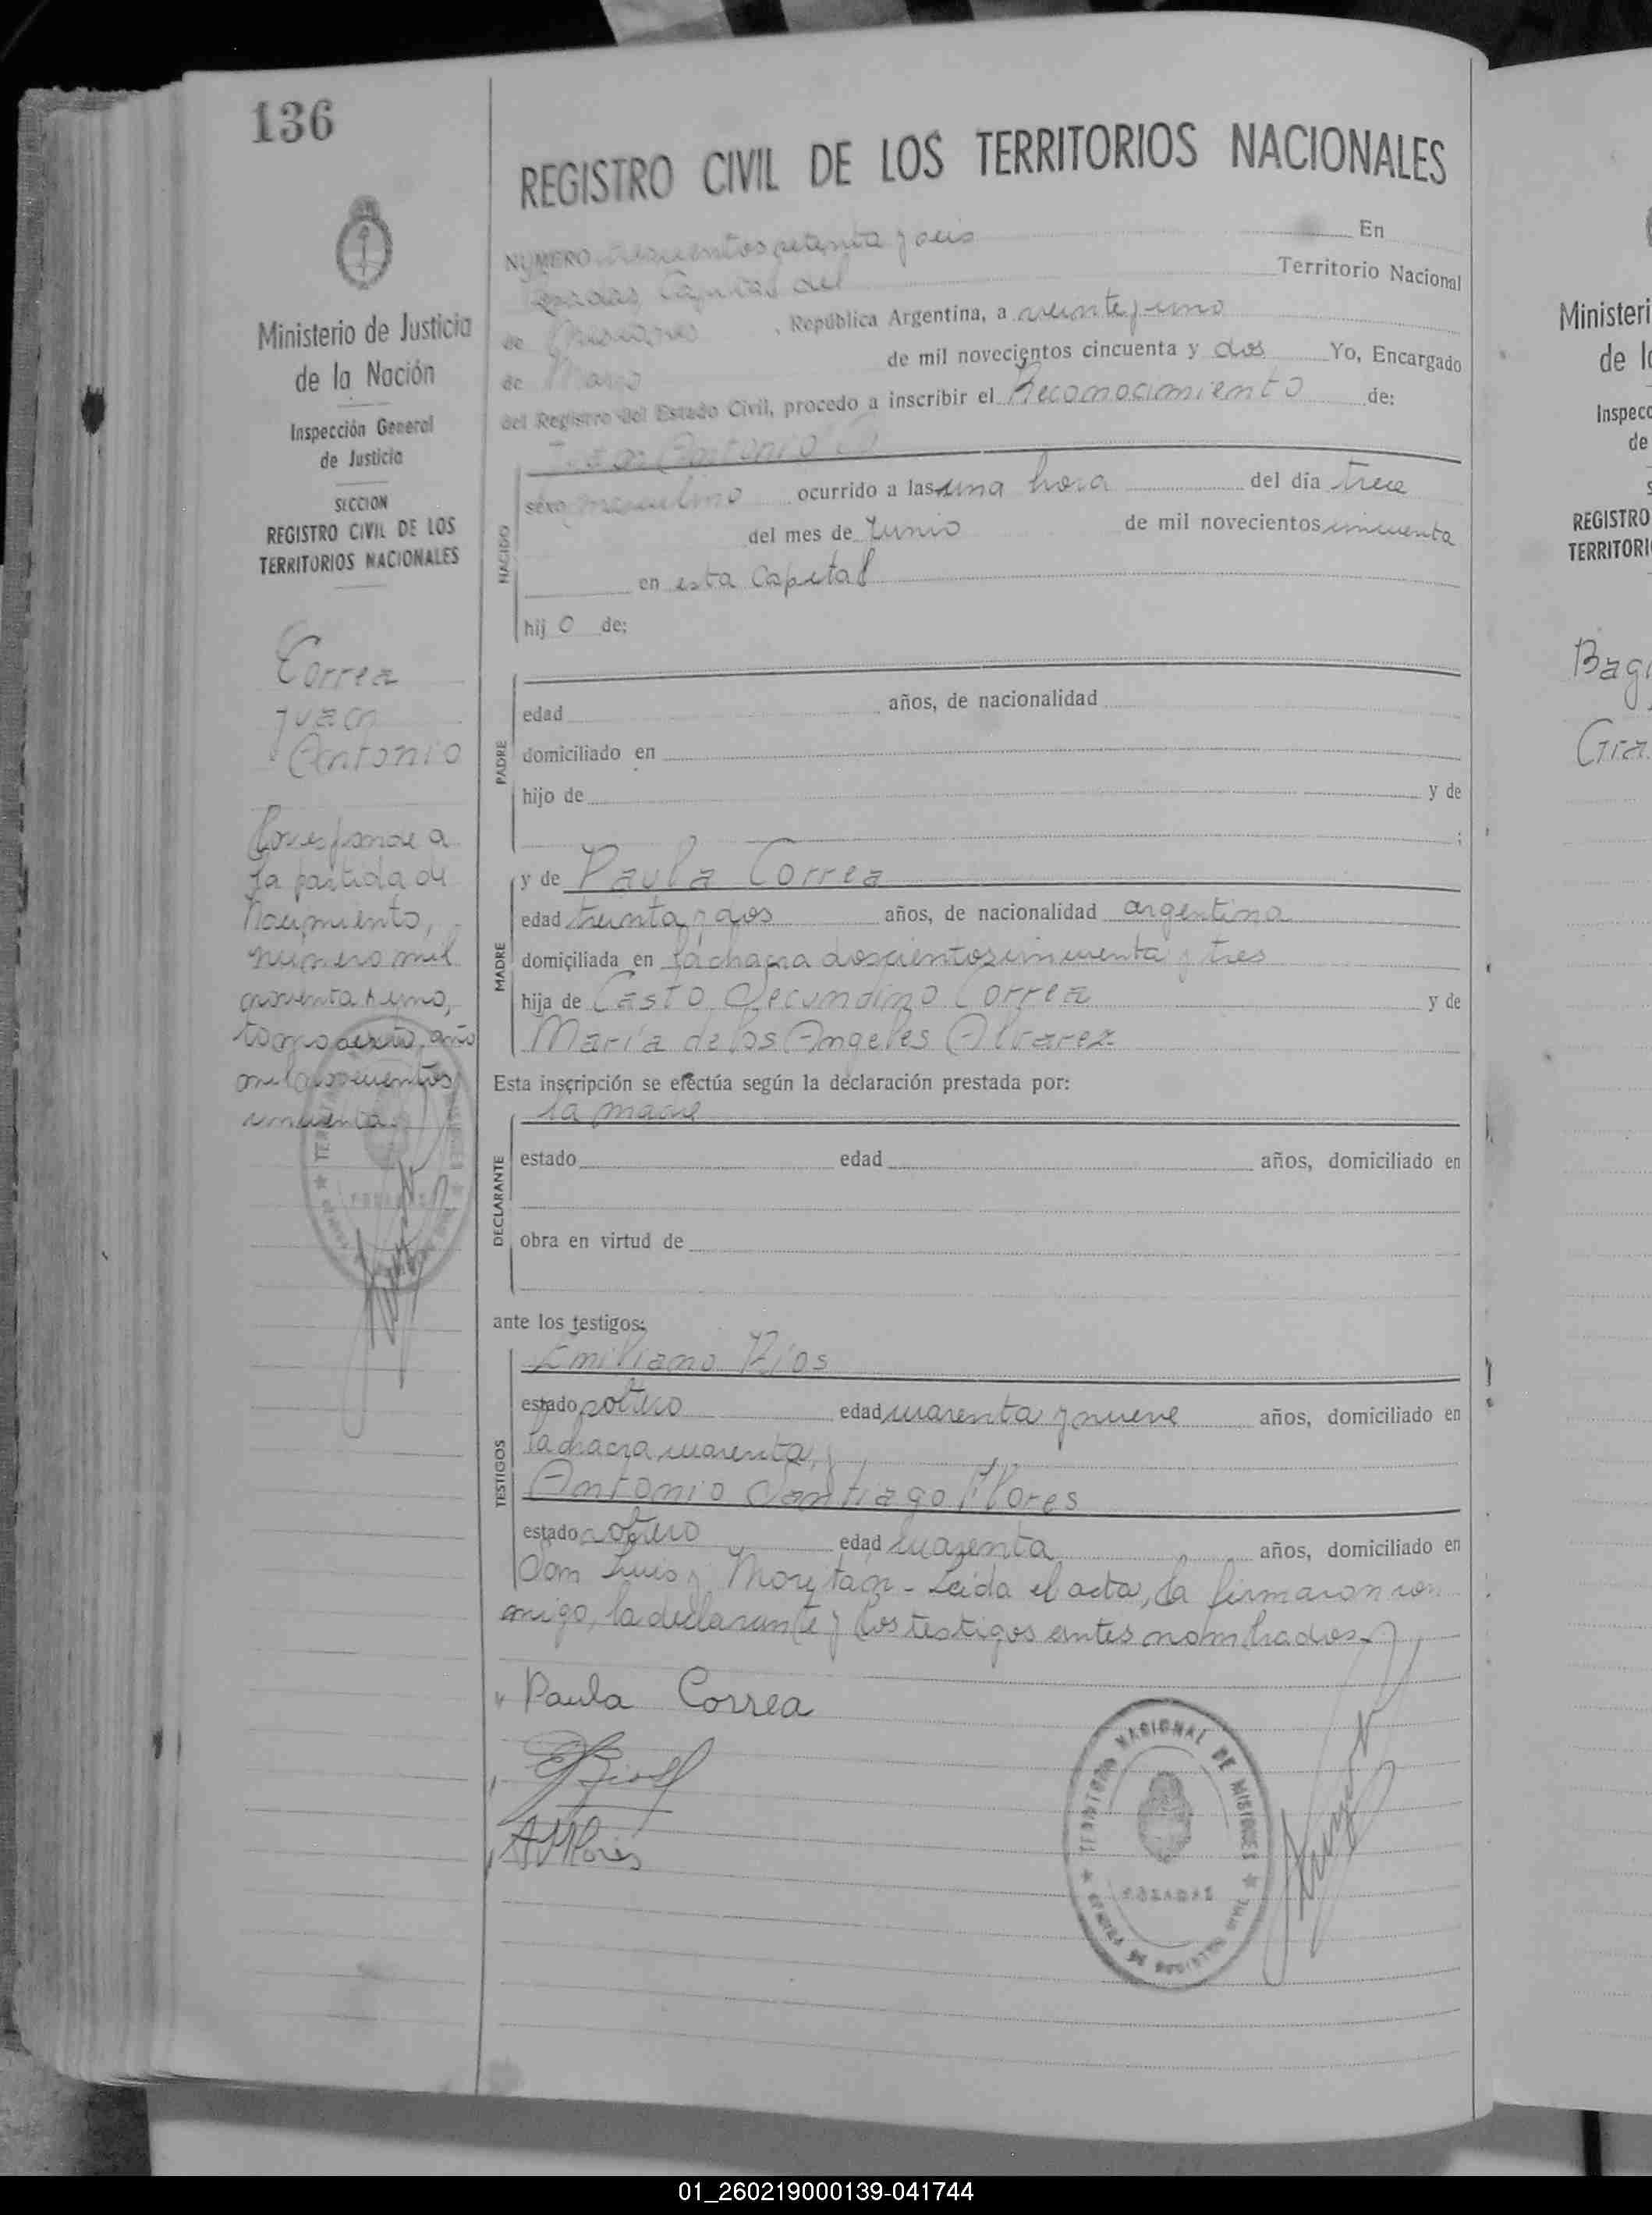 136
REGISTRO CIVIL DE LOS TERRITORIOS NACIONALES
Ministerio de Justicia
de la Nación
Inspección General
de Justicia
SECCION
REGISTRO CIVIL DE LOS
TERRITORIOS NACIONALES
Correa
Juan
Antonio
Corresponde a
la partida de
Nacimiento,
número mil
noventa y uno,
tomo sexto, año
mil novecientos
cincuenta.
NUMERO trescientos setenta y seis En
Posadas, Capital del Territorio Nacional
de Misiones, República Argentina, a veinte y uno
de Marzo de mil novecientos cincuenta y dos Yo, Encargado
del Registro del Estado Civil, procedo a inscribir el Reconocimiento de:
Juan Antonio
NACIDO
sexo masculino ocurrido a las una hora del día trece
del mes de Junio de mil novecientos cincuenta
en esta Capital
hij o de:
PADRE
edad años, de nacionalidad
domiciliado en
hijo de y de
;
MADRE
y de Paula Correa
edad treinta y dos años, de nacionalidad argentina
domiciliada en la chacra doscientos cincuenta y tres
hija de Casto Secundino Correa y de
María de los Angeles Alvarez
Esta inscripción se efectúa según la declaración prestada por:
la madre
DECLARANTE
estado edad años, domiciliado en
obra en virtud de
ante los testigos:
TESTIGOS
Emiliano Ríos
estado soltero edad cuarenta y nueve años, domiciliado en
la chacra cuarenta, y
Antonio Santiago Flores
estado soltero edad cuarenta años, domiciliado en
San Luis y Moritán - Leída el acta, la firmaron con-
migo, la declarante y los testigos antes nombrados.-
Paula Correa
ERios
AFlores
TERRITORIO NACIONAL DE MISIONES
POSADAS
OFICINA DE REGISTRO CIVIL
Ministeri
de l
Inspecc
de
REGISTRO
TERRITORI
01_260219000139-041744